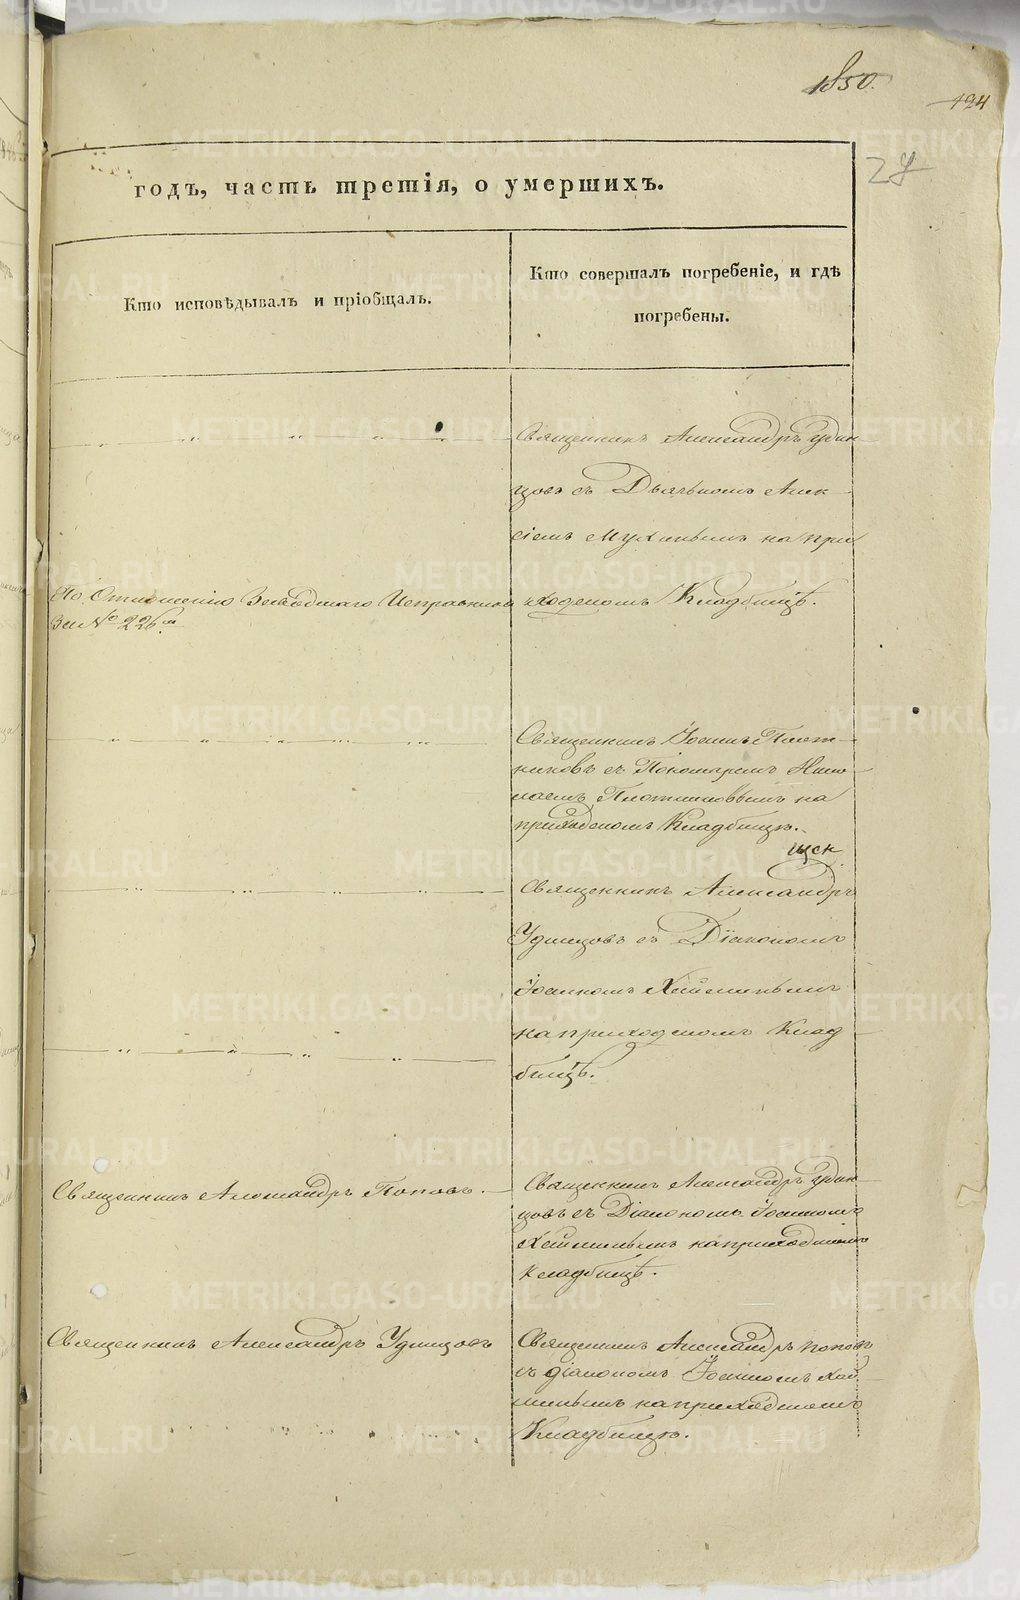 1850.
124
27
годъ, часть третія, о умершихъ.
Кто исповѣдывалъ и пріобщалъ.
Кто совершалъ погребеніе, и гдѣ
погребены.
Священникъ Александръ Удин
цовъ съ Дьячкомъ Алек
сіемъ на при
ходскомъ Кладбищѣ.
По Отношенію Заводскаго Исправника
за № 226м
Священникъ Іоаннъ Плот
никовъ съ Пономаремъ Нико
лаемъ Плотниковымъ на
приходскомъ Кладбищѣ.
Священникъ Александръ
Удинцовъ съ Діакономъ
Іоанномъ
на приходскомъ Клад
бищѣ.
Священникъ Александръ Поповъ.
Священникъ Александръ Удин
цовъ съ Діакономъ Іоанномъ
на приходскомъ
кладбищѣ.
Священникъ Александръ Удинцовъ
Священникъ Александръ Поповъ
съ діакономъ Іоанномъ
на приходскомъ
Кладбищѣ.
METRIKI.GASO-URAL.RU